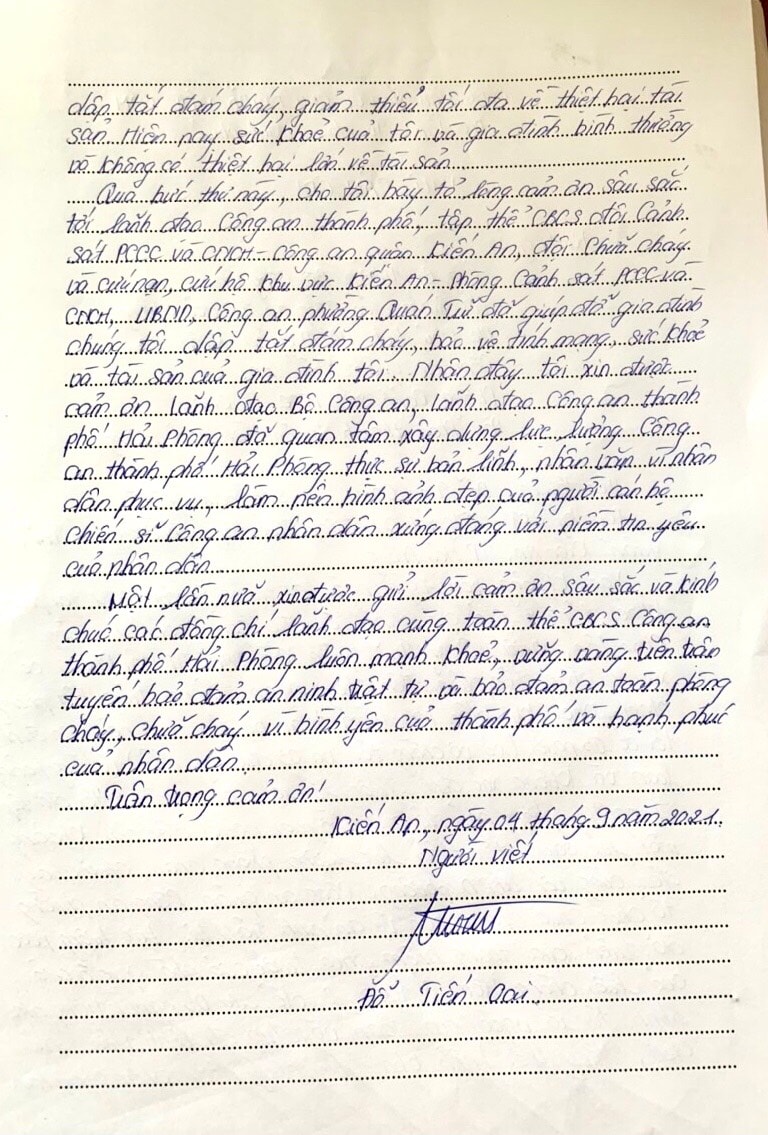 dập tắt đám cháy, giảm thiểu tối đa về thiệt hại tài
sản. Hiện nay sức khoẻ của tôi và gia đình bình thường
và không có thiệt hại lớn về tài sản.
Qua bức thư này, cho tôi bày tỏ lòng cảm ơn sâu sắc
tới lãnh đạo Công an thành phố, tập thể CBCS đội Cảnh
sát PCCC và CNCH - Công an quận Kiến An, đội Chữa cháy
và cứu nạn, cứu hộ khu vực Kiến An - Phòng Cảnh sát PCCC và
CNCH, UBND, Công an phường Quán Trữ đã giúp đỡ gia đình
chúng tôi dập tắt đám cháy, bảo vệ tính mạng, sức khoẻ
và tài sản của gia đình tôi. Nhân đây tôi xin được
cảm ơn lãnh đạo Bộ Công an, lãnh đạo Công an thành
phố Hải Phòng đã quan tâm xây dựng lực lượng Công
an thành phố Hải Phòng thực sự bản lĩnh, nhân văn vì nhân
dân phục vụ, làm nên hình ảnh đẹp của người cán bộ
chiến sĩ Công an nhân dân xứng đáng với niềm tin yêu
của nhân dân.
Một lần nữa xin được gửi lời cảm ơn sâu sắc và kính
chúc các đồng chí lãnh đạo cùng toàn thể CBCS Công an
thành phố Hải Phòng luôn mạnh khoẻ, vững vàng trên trận
tuyến bảo đảm an ninh trật tự và bảo đảm an toàn phòng
cháy, chữa cháy vì bình yên của thành phố và hạnh phúc
của nhân dân.
Trân trọng cảm ơn!
Kiến An, ngày 04 tháng 9 năm 2021.
Người viết
Đỗ Tiến Oai